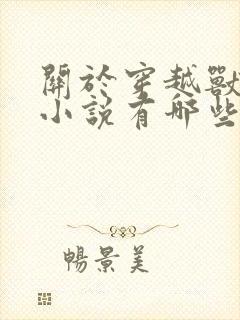 關於穿越獸
小說有哪些
暢景美